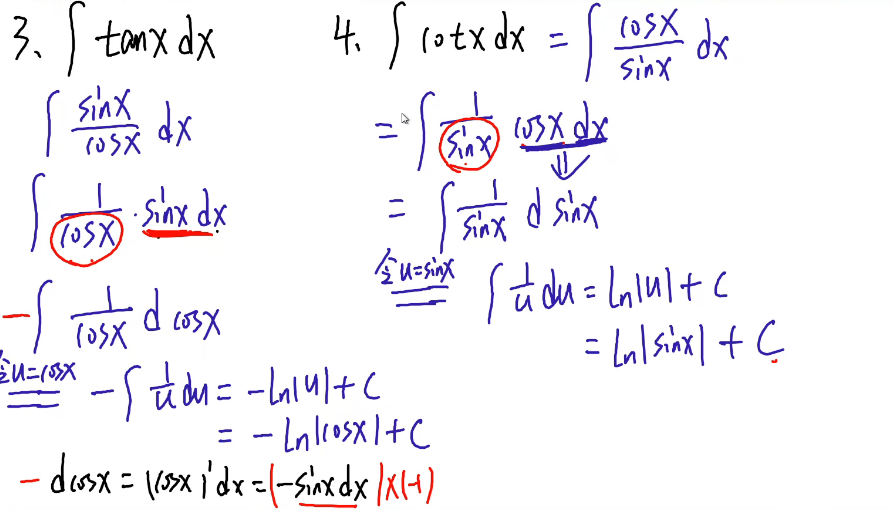 3. ∫ tanx dx
∫ sinx/cosx dx
∫ 1/cosx · sinx dx
- ∫ 1/cosx d cosx
令u=cosx - ∫ 1/u du = -ln|u| + C
= -ln|cosx| + C
- dcosx = (cosx)' dx = (-sinx dx)x(-1)
4. ∫ cotx dx = ∫ cosx/sinx dx
= ∫ 1/sinx cosx dx
= ∫ 1/sinx d sinx
令u=sinx ∫ 1/u du = ln|u| + C
= ln|sinx| + C